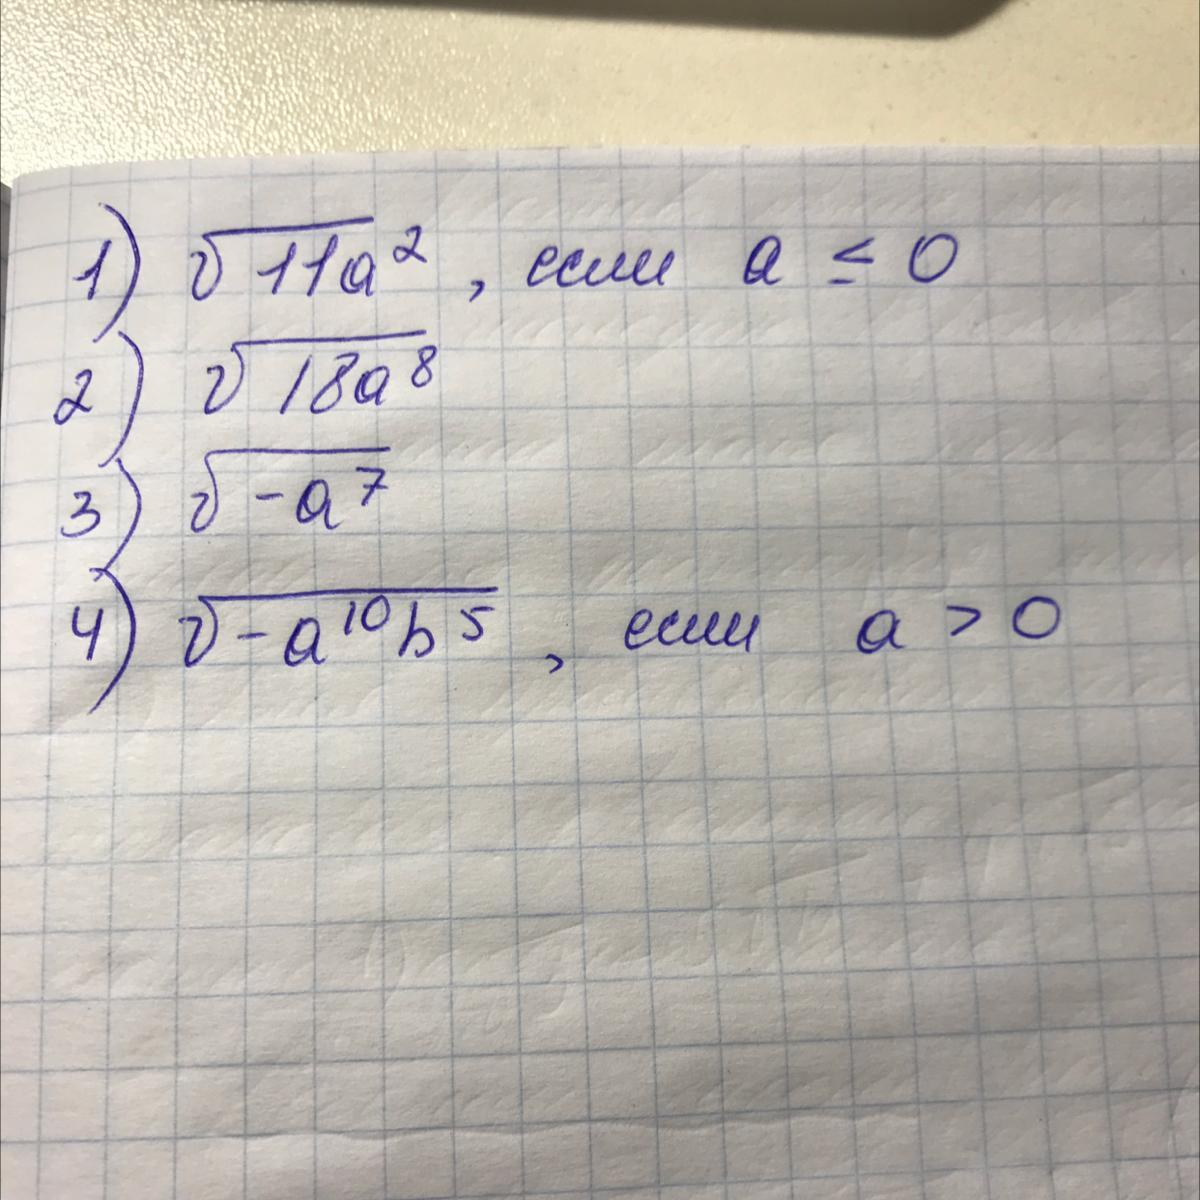 1) √11a², если a ≤ 0
2) √18a⁸
3) √-a⁷
4) √-a¹⁰b⁵, если a > 0